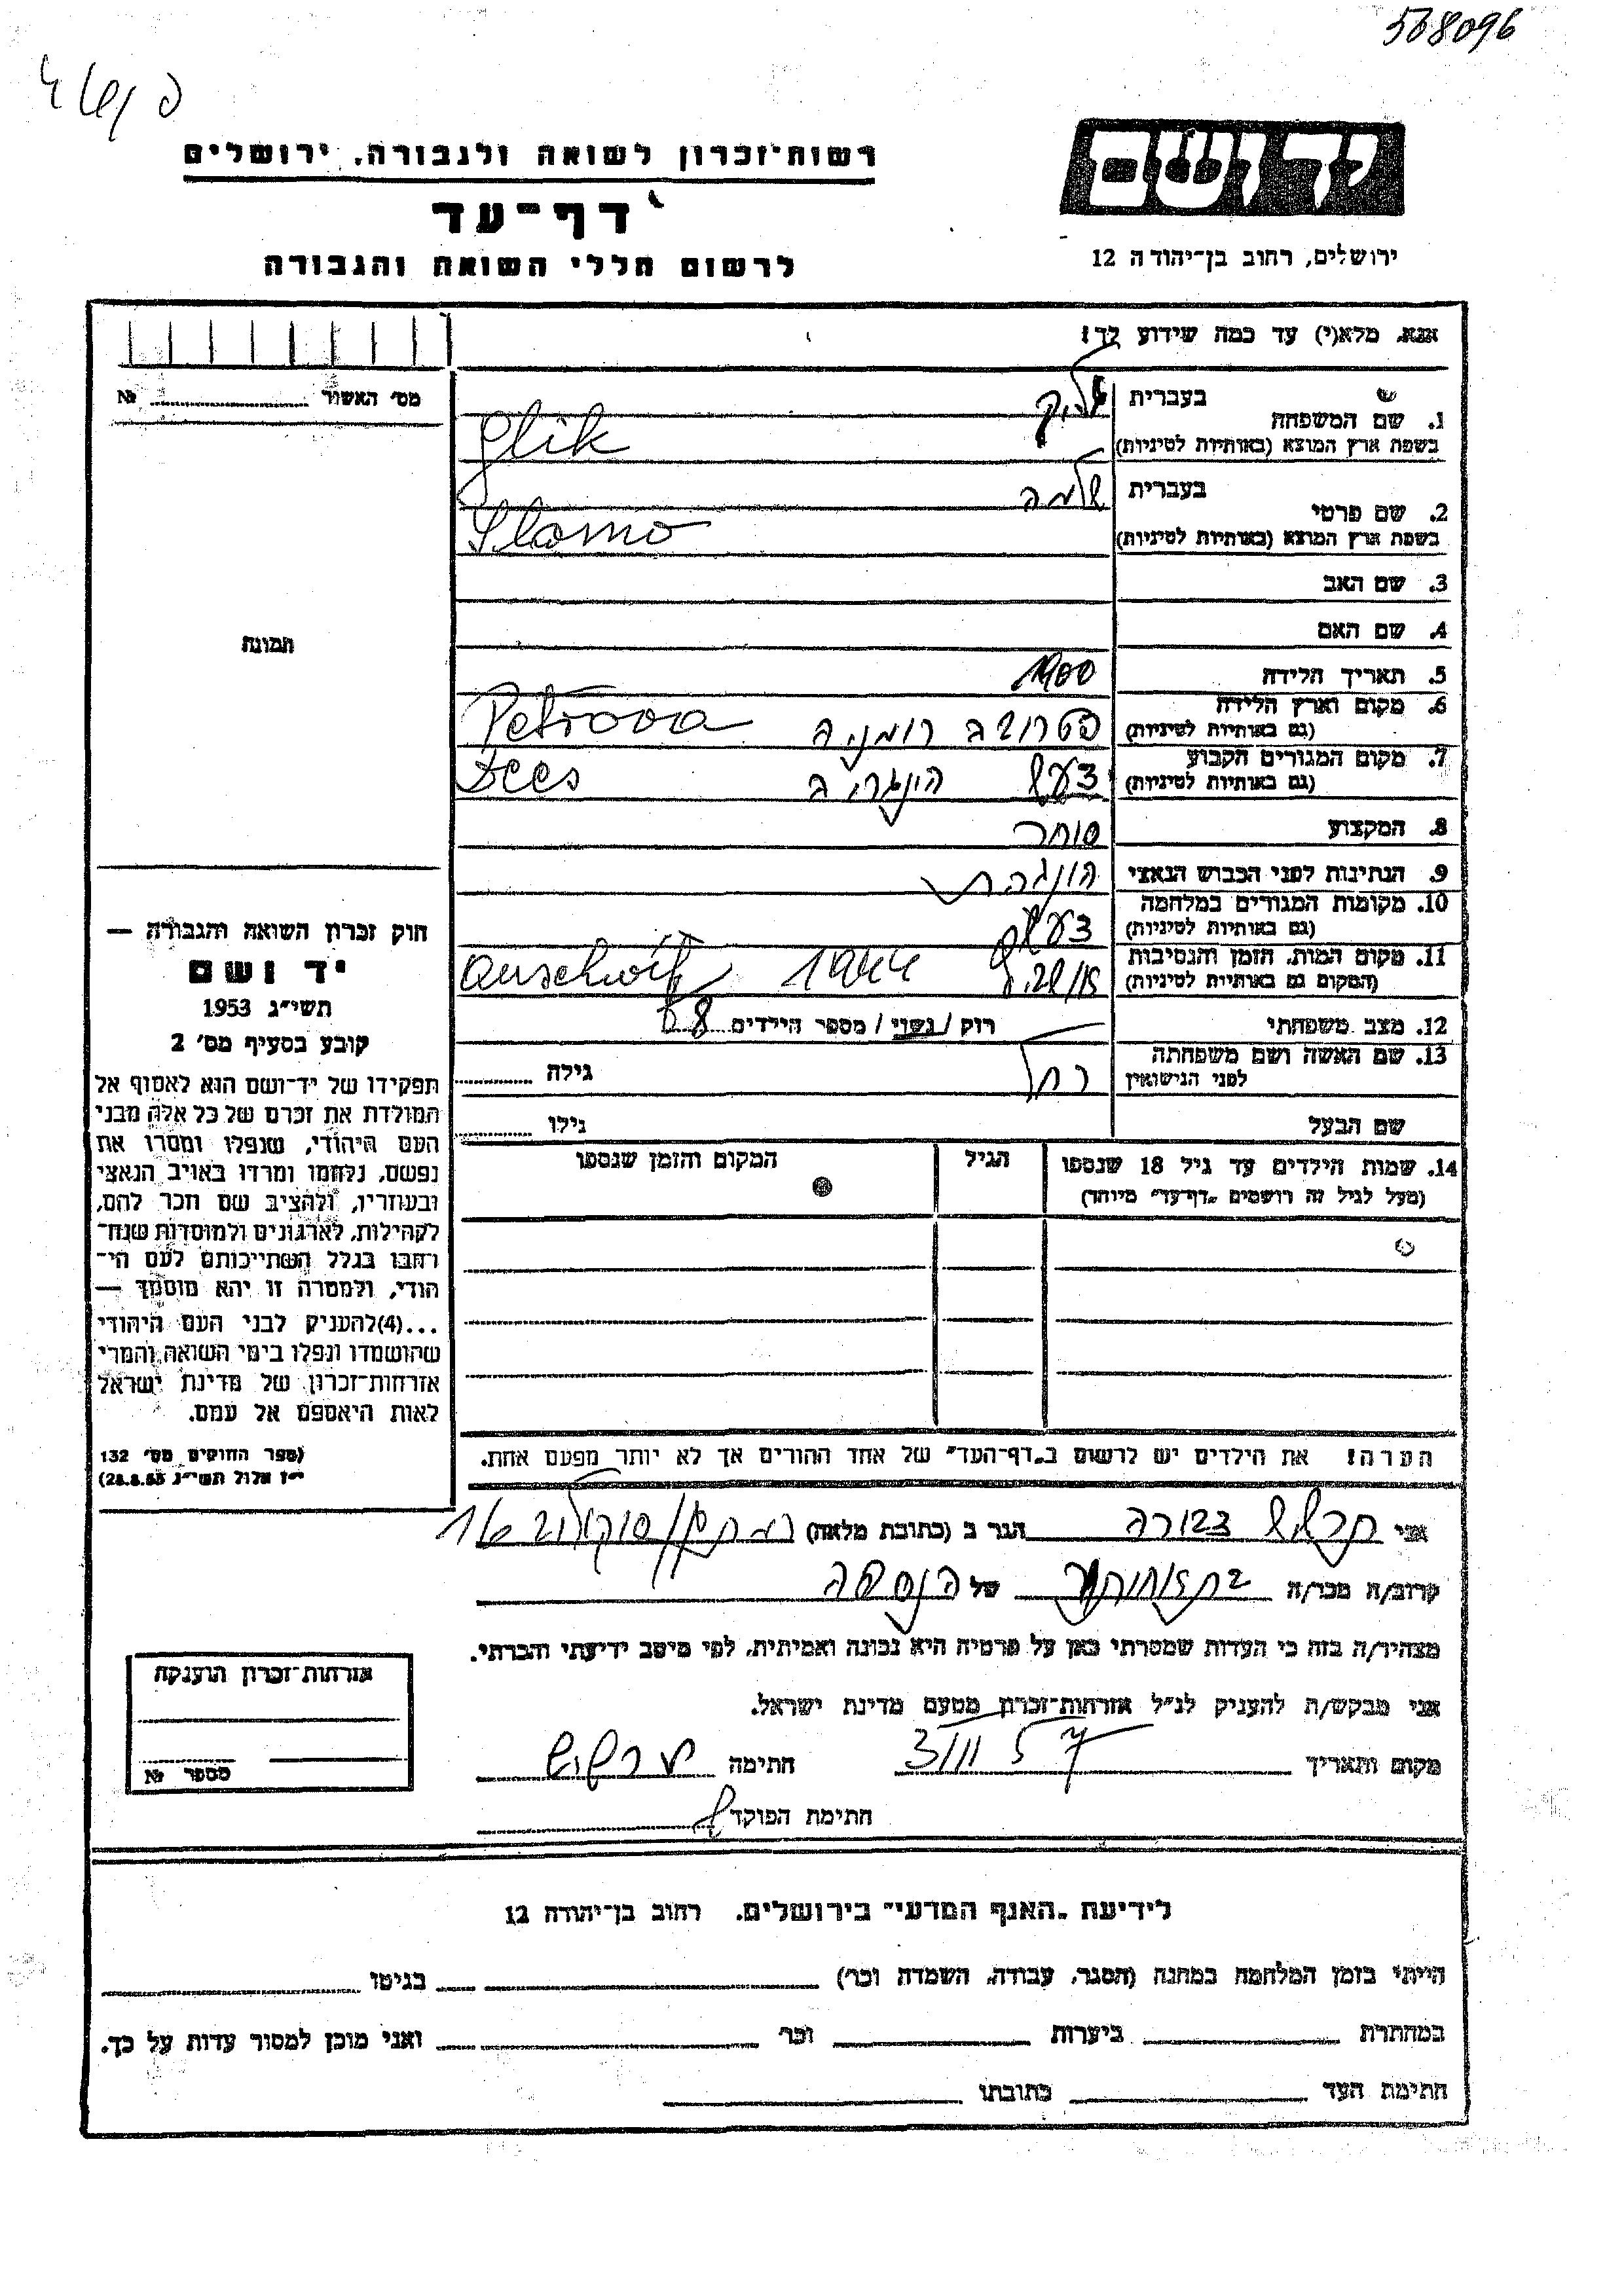 568096
רשות־זכרון לשואה ולגבורה. ירושלים
דף־עד
לרשום חללי השואה והגבורה
יד ושם
ירושלים, רחוב בן־יהודה 12
אנא. מלא(י) עד כמה שידוע לך!
מס׳ האשור № 
1. שם המשפחה
בעברית גליק
בשפת ארץ המוצא (באותיות לטיניות) Glik
2. שם פרטי
בעברית שלמה
בשפת ארץ המוצא (באותיות לטיניות) Slomo
3. שם האב
4. שם האם
תמונה
5. תאריך הלידה 1900
6. מקום וארץ הלידה
(גם באותיות לטיניות) פטרובה רומניה Petrova
7. מקום המגורים הקבוע
(גם באותיות לטיניות) דעש הונגריה Dees
8. המקצוע סוחר
9. הנתינות לפני הכבוש הנאצי הונגרית
10. מקומות המגורים במלחמה
(גם באותיות לטיניות) דעש
11. מקום המות, הזמן והנסיבות
(המקום גם באותיות לטיניות) 1944 Auschwitz
12. מצב משפחתי רוק / נשוי / מספר הילדים 8
13. שם האשה ושם משפחתה
לפני הנישואין רחל גילה
שם הבעל גילו
14. שמות הילדים עד גיל 18 שנספו
(מעל לגיל זה רושמים „דף־עד״ מיוחד)
הגיל
המקום והזמן שנספו
חוק זכרון השואה והגבורה —
יד ושם
תשי״ג 1953
קובע בסעיף מס׳ 2
תפקידו של יד־ושם הוא לאסוף אל
המולדת את זכרם של כל אלה מבני
העם היהודי, שנפלו ומסרו את
נפשם, נלחמו ומרדו באויב הנאצי
ובעוזריו, ולהציב שם וזכר להם,
לקהילות, לארגונים ולמוסדות שנח־
רבו בגלל השתייכותם לעם הי־
הודי, ולמטרה זו יהא מוסמך —
...(4)להעניק לבני העם היהודי
שהושמדו ונפלו בימי השואה והמרי
אזרחות־זכרון של מדינת ישראל
לאות היאספם אל עמם.
(ספר החוקים מס׳ 132
י״ז אלול תשי״ג 28.8.53)
הערה! את הילדים יש לרשום ב„דף־העד״ של אחד ההורים אך לא יותר מפעם אחת.
אני דבורה הגר ב (כתובת מלאה)
קרוב/ה מכר/ה של הנספה
מצהיר/ה בזה כי העדות שמסרתי כאן על פרטיה היא נכונה ואמיתית, לפי מיטב ידיעתי והכרתי.
אני מבקש/ת להעניק לנ״ל אזרחות־זכרון מטעם מדינת ישראל.
מקום ותאריך 3/III 57 חתימה
חתימת הפוקד
אזרחות־זכרון הוענקה
מספר №
לידיעת „האגף המדעי״ בירושלים. רחוב בן־יהודה 12
הייתי בזמן המלחמה במחנה (הסגר, עבודה, השמדה וכר׳) בגיטו
במחתרת ביערות וכר׳ ואני מוכן למסור עדות על כך.
חתימת העד כתובתו